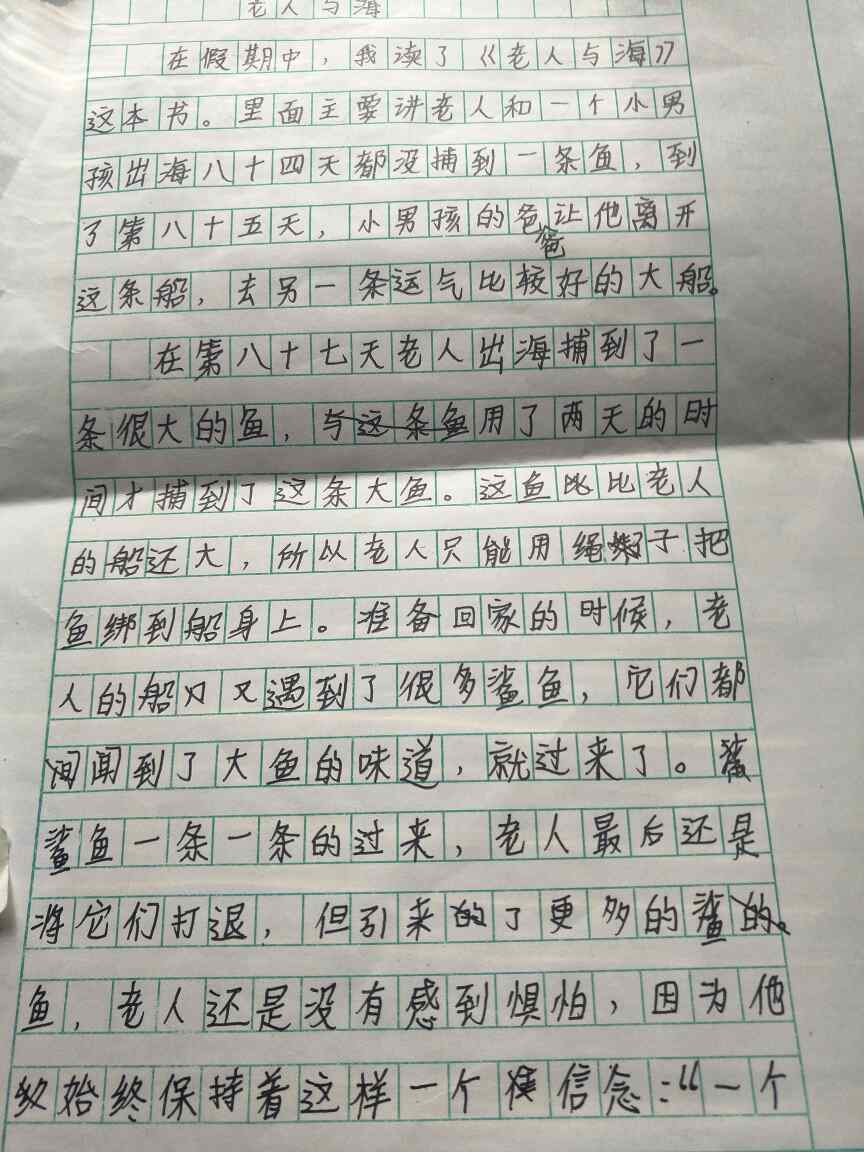 老人与海
在假期中，我读了《老人与海》
这本书。里面主要讲老人和一个小男
孩出海八十四天都没捕到一条鱼，到
了第八十五天，小男孩的爸爸让他离开
这条船，去另一条运气比较好的大船。
在第八十七天老人出海捕到了一
条很大的鱼，与这条鱼用了两天的时
间才捕到了这条大鱼。这鱼比比老人
的船还大，所以老人只能用绳子把
鱼绑到船身上。准备回家的时候，老
人的船又遇到了很多鲨鱼，它们都
闻到了大鱼的味道，就过来了。
鲨鱼一条一条的过来，老人最后还是
将它们打退，但引来了更多的鲨
鱼，老人还是没有感到惧怕，因为他
始终保持着这样一个信念：“一个